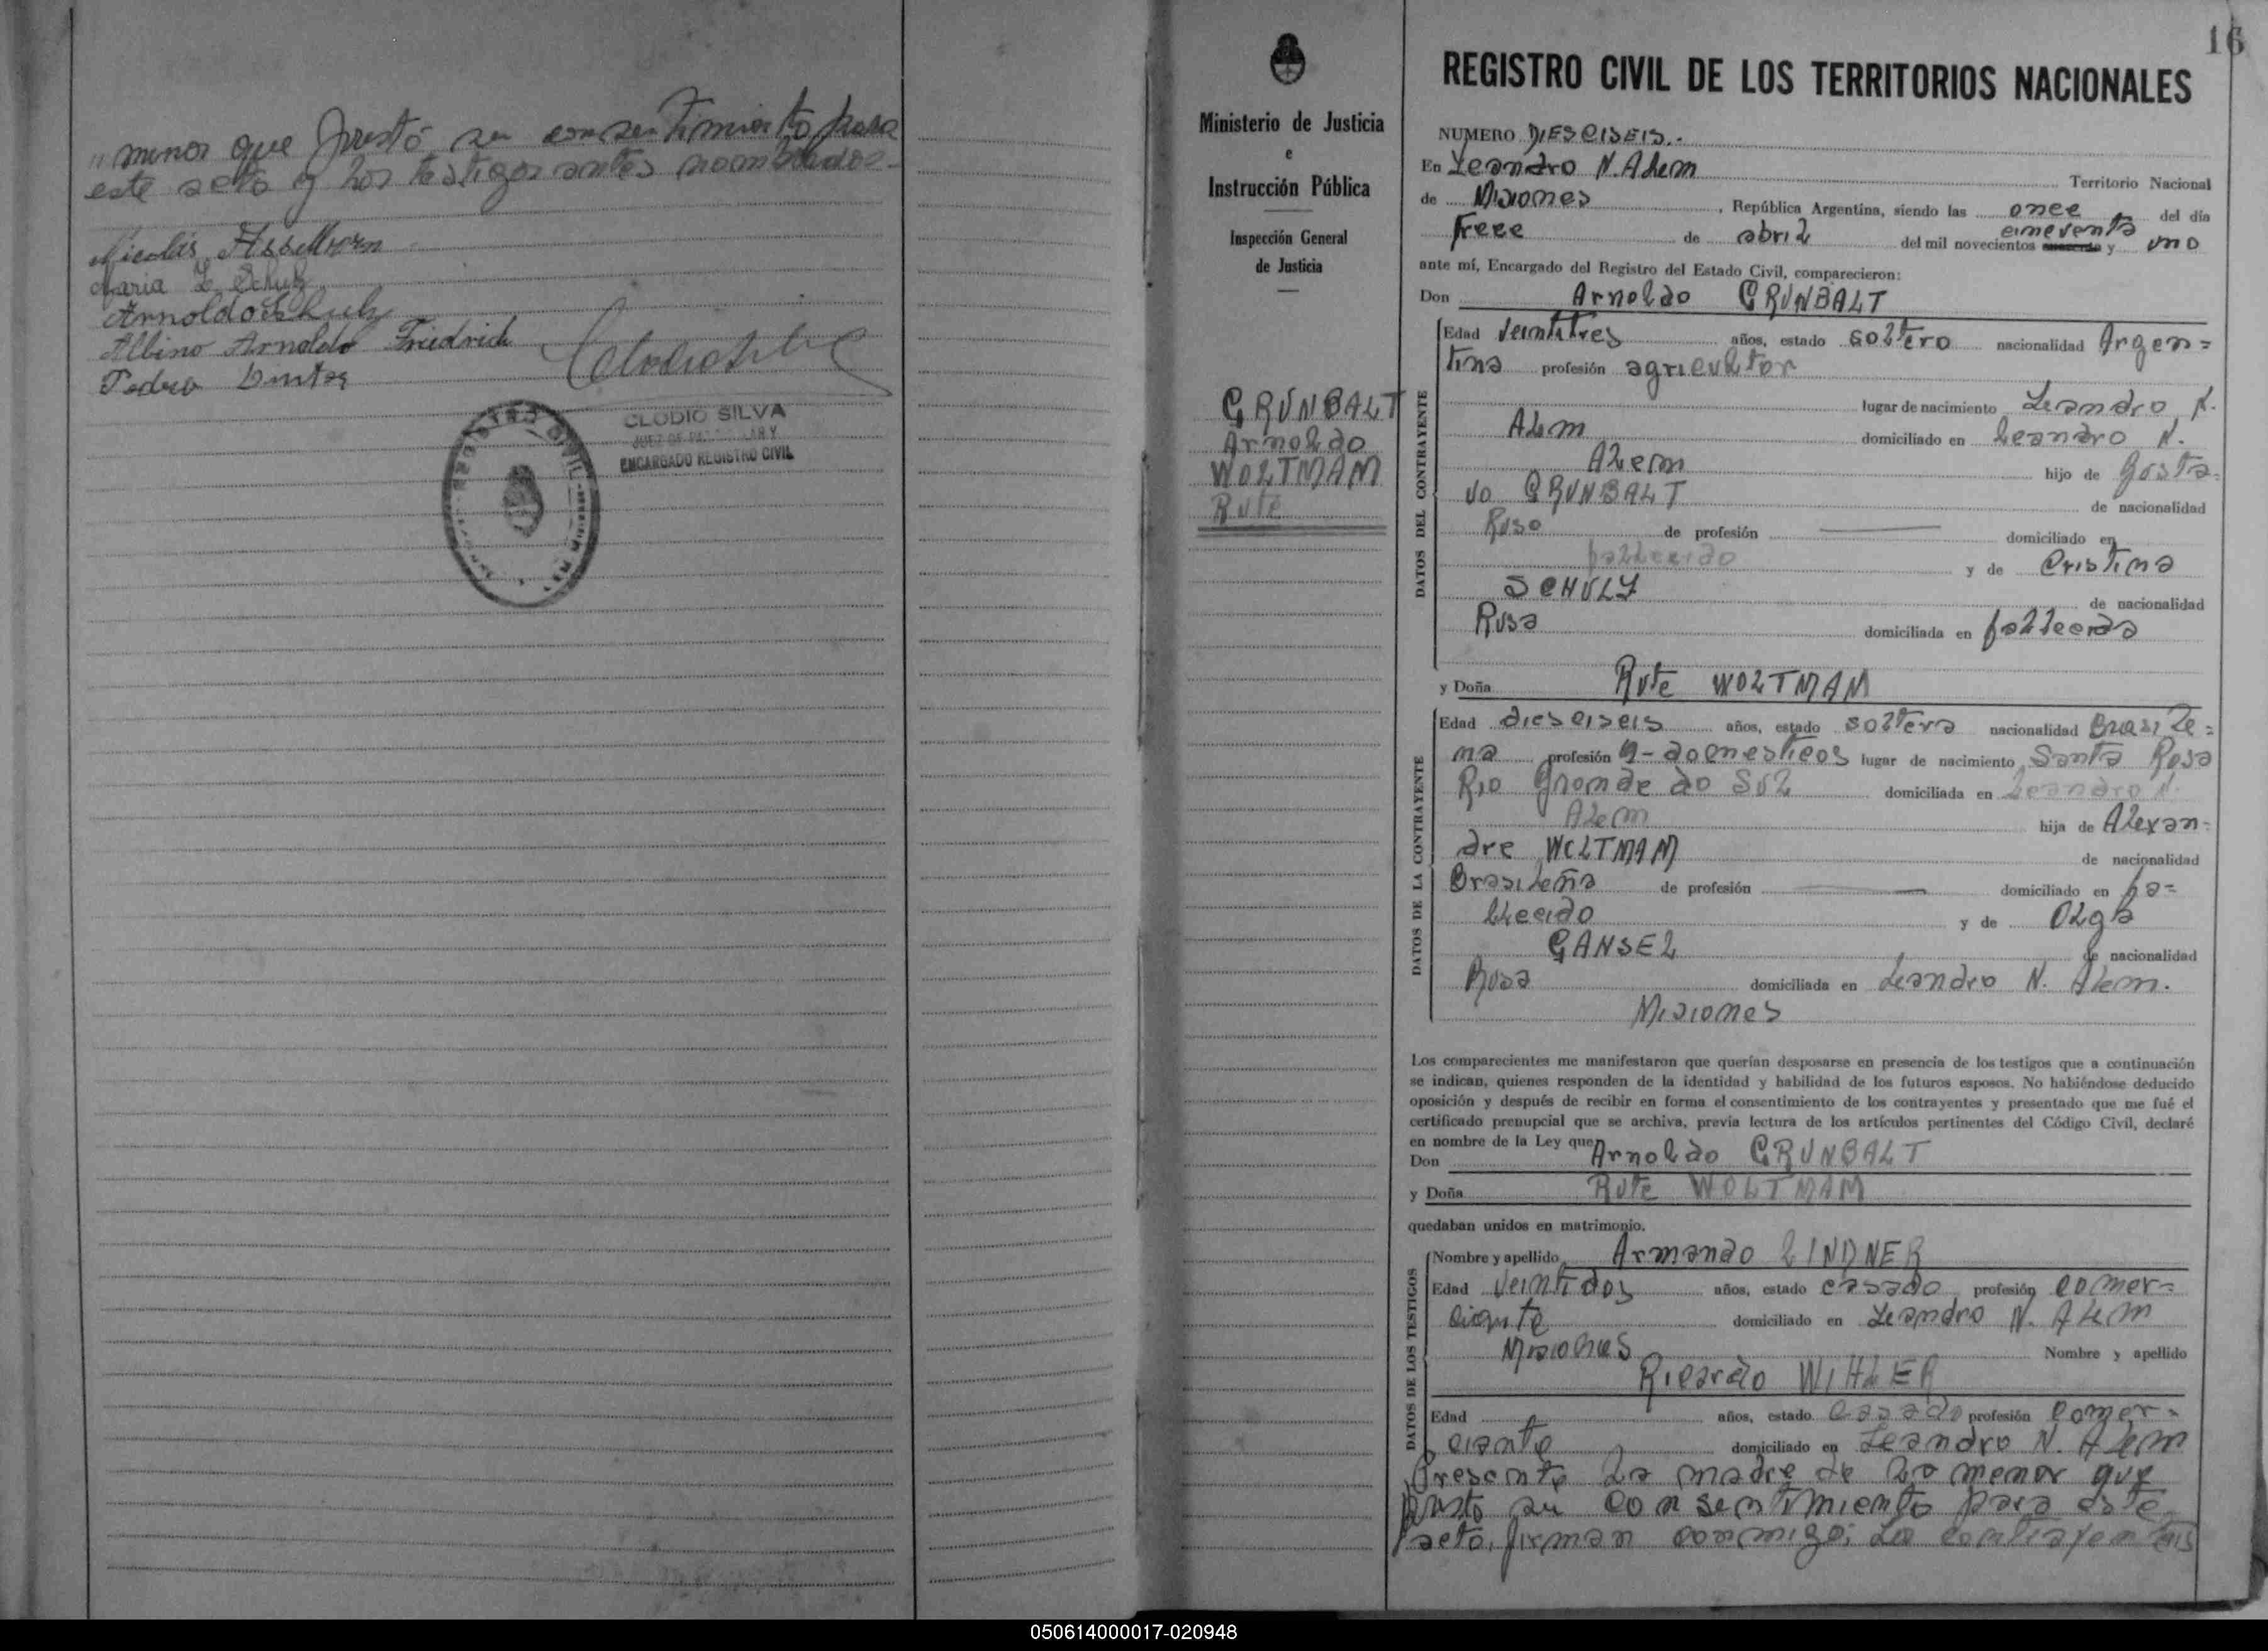 " menor que prestó su consentimiento para
este acto y los testigos antes nombrados.-
Nicolás Asselborn
Maria L Schulz
Arnoldo Schulz
Albino Arnoldo Friedrich
Pedro
CLODIO SILVA
JUEZ DE PAZ
ENCARGADO REGISTRO CIVIL
REGISTRO CIVIL
16
Ministerio de Justicia
e
Instrucción Pública
Inspección General
de Justicia
GRUNBALT
Arnoldo
WOLTMAM
Rute
REGISTRO CIVIL DE LOS TERRITORIOS NACIONALES
NUMERO DIESCISEIS.-
En Leandro N. Alem Territorio Nacional
de Misiones, República Argentina, siendo las once del día
trece de abril del mil novecientos cincuenta y uno
ante mí, Encargado del Registro del Estado Civil, comparecieron:
Don Arnoldo GRUNBALT
DATOS DEL CONTRAYENTE
Edad veintitres años, estado soltero nacionalidad Argen=
tina profesión agricultor
lugar de nacimiento Leandro N.
Alem domiciliado en Leandro N.
Alem hijo de Gusta=
vo GRUNBALT de nacionalidad
Ruso de profesión domiciliado en
fallecido y de Cristina
SCHULZ de nacionalidad
Rusa domiciliada en fallecida
y Doña Rute WOLTMAM
DATOS DE LA CONTRAYENTE
Edad diesciseis años, estado soltera nacionalidad Brasile=
na profesión q-domesticos lugar de nacimiento Santa Rosa
Rio Grande do Sul domiciliada en Leandro N.
Alem hija de Alexan=
dre WOLTMAM de nacionalidad
Brasileña de profesión domiciliado en fa=
llecido y de Olga
GANSEL de nacionalidad
Rusa domiciliada en Leandro N. Alem.
Misiones
Los comparecientes me manifestaron que querían desposarse en presencia de los testigos que a continuación
se indican, quienes responden de la identidad y habilidad de los futuros esposos. No habiéndose deducido
oposición y después de recibir en forma el consentimiento de los contrayentes y presentado que me fué el
certificado prenupcial que se archiva, previa lectura de los artículos pertinentes del Código Civil, declaré
en nombre de la Ley que
Don Arnoldo GRUNBALT
y Doña Rute WOLTMAM
quedaban unidos en matrimonio.
DATOS DE LOS TESTIGOS
Nombre y apellido Armando LINDNER
Edad veintidos años, estado casado profesión comer=
ciante domiciliado en Leandro N. Alem
Misiones Nombre y apellido
Ricardo WIHLER
Edad años, estado casado profesión comer=
ciante domiciliado en Leandro N. Alem
Presente la madre de la menor que
presto su consentimiento para este
acto, firman conmigo; los contrayentes
050614000017-020948